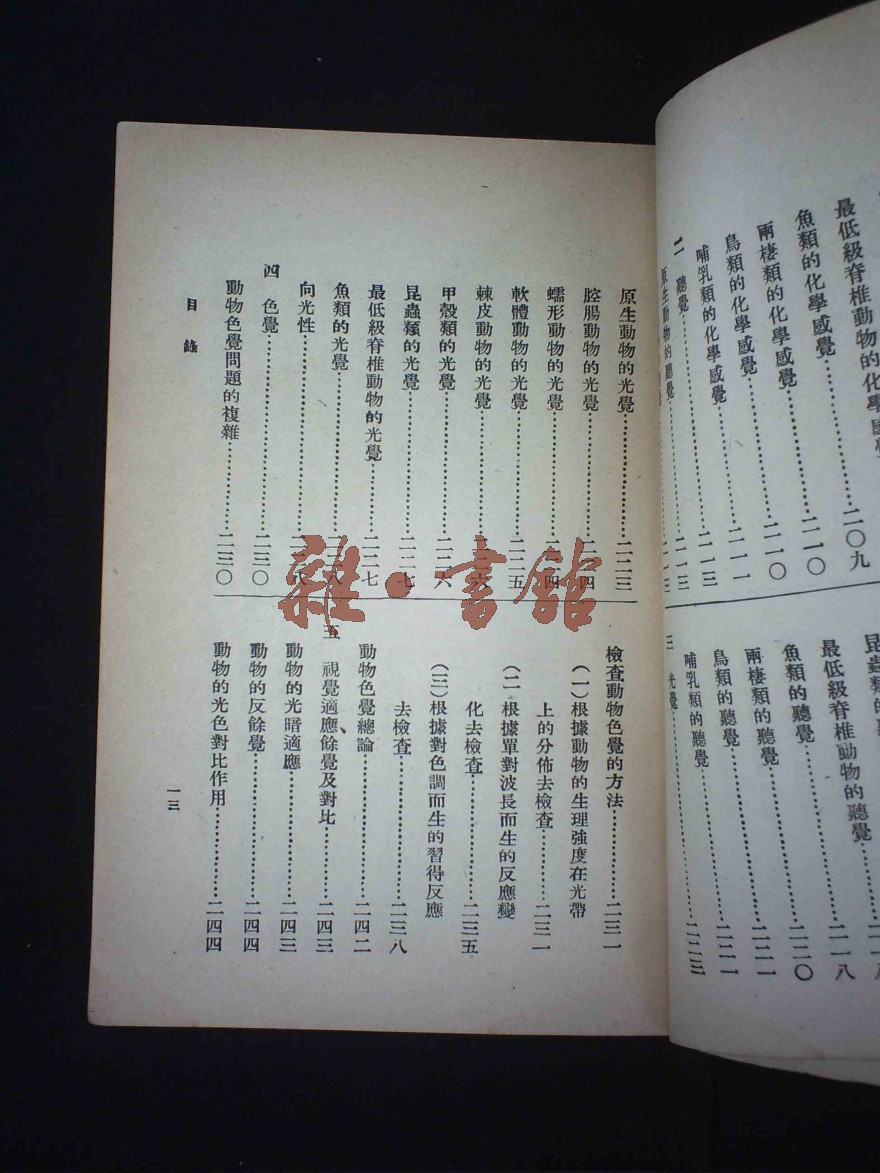 最低級脊椎動物的化學感覺……二〇九
魚類的化學感覺……二一〇
兩棲類的化學感覺……二一〇
鳥類的化學感覺……二一一
哺乳類的化學感覺……二一三
二 聽覺……二一三
原生動物的聽覺……二一三
昆蟲類的聽覺……二一八
最低級脊椎動物的聽覺……二一八
魚類的聽覺……二二〇
兩棲類的聽覺……二二一
鳥類的聽覺……二二一
哺乳類的聽覺……二二三
三 光覺
原生動物的光覺……二二三
腔腸動物的光覺……二二四
蠕形動物的光覺……二二四
軟體動物的光覺……二二五
棘皮動物的光覺……二二六
甲殼類的光覺……二二六
昆蟲類的光覺……二二七
最低級脊椎動物的光覺……二二七
魚類的光覺……二二八
向光性
四 色覺……二三〇
動物色覺問題的複雜……二三〇
檢查動物色覺的方法……二三一
(一)根據動物的生理強度在光帶
上的分佈去檢查……二三一
(二)根據單對波長而生的反應變
化去檢查……二三五
(三)根據對色調而生的習得反應
去檢查……二三八
動物色覺總論……二四二
五 視覺適應、餘覺及對比……二四三
動物的光暗適應……二四三
動物的反餘覺……二四四
動物的光色對比作用……二四四
目錄
一三
雜·書館